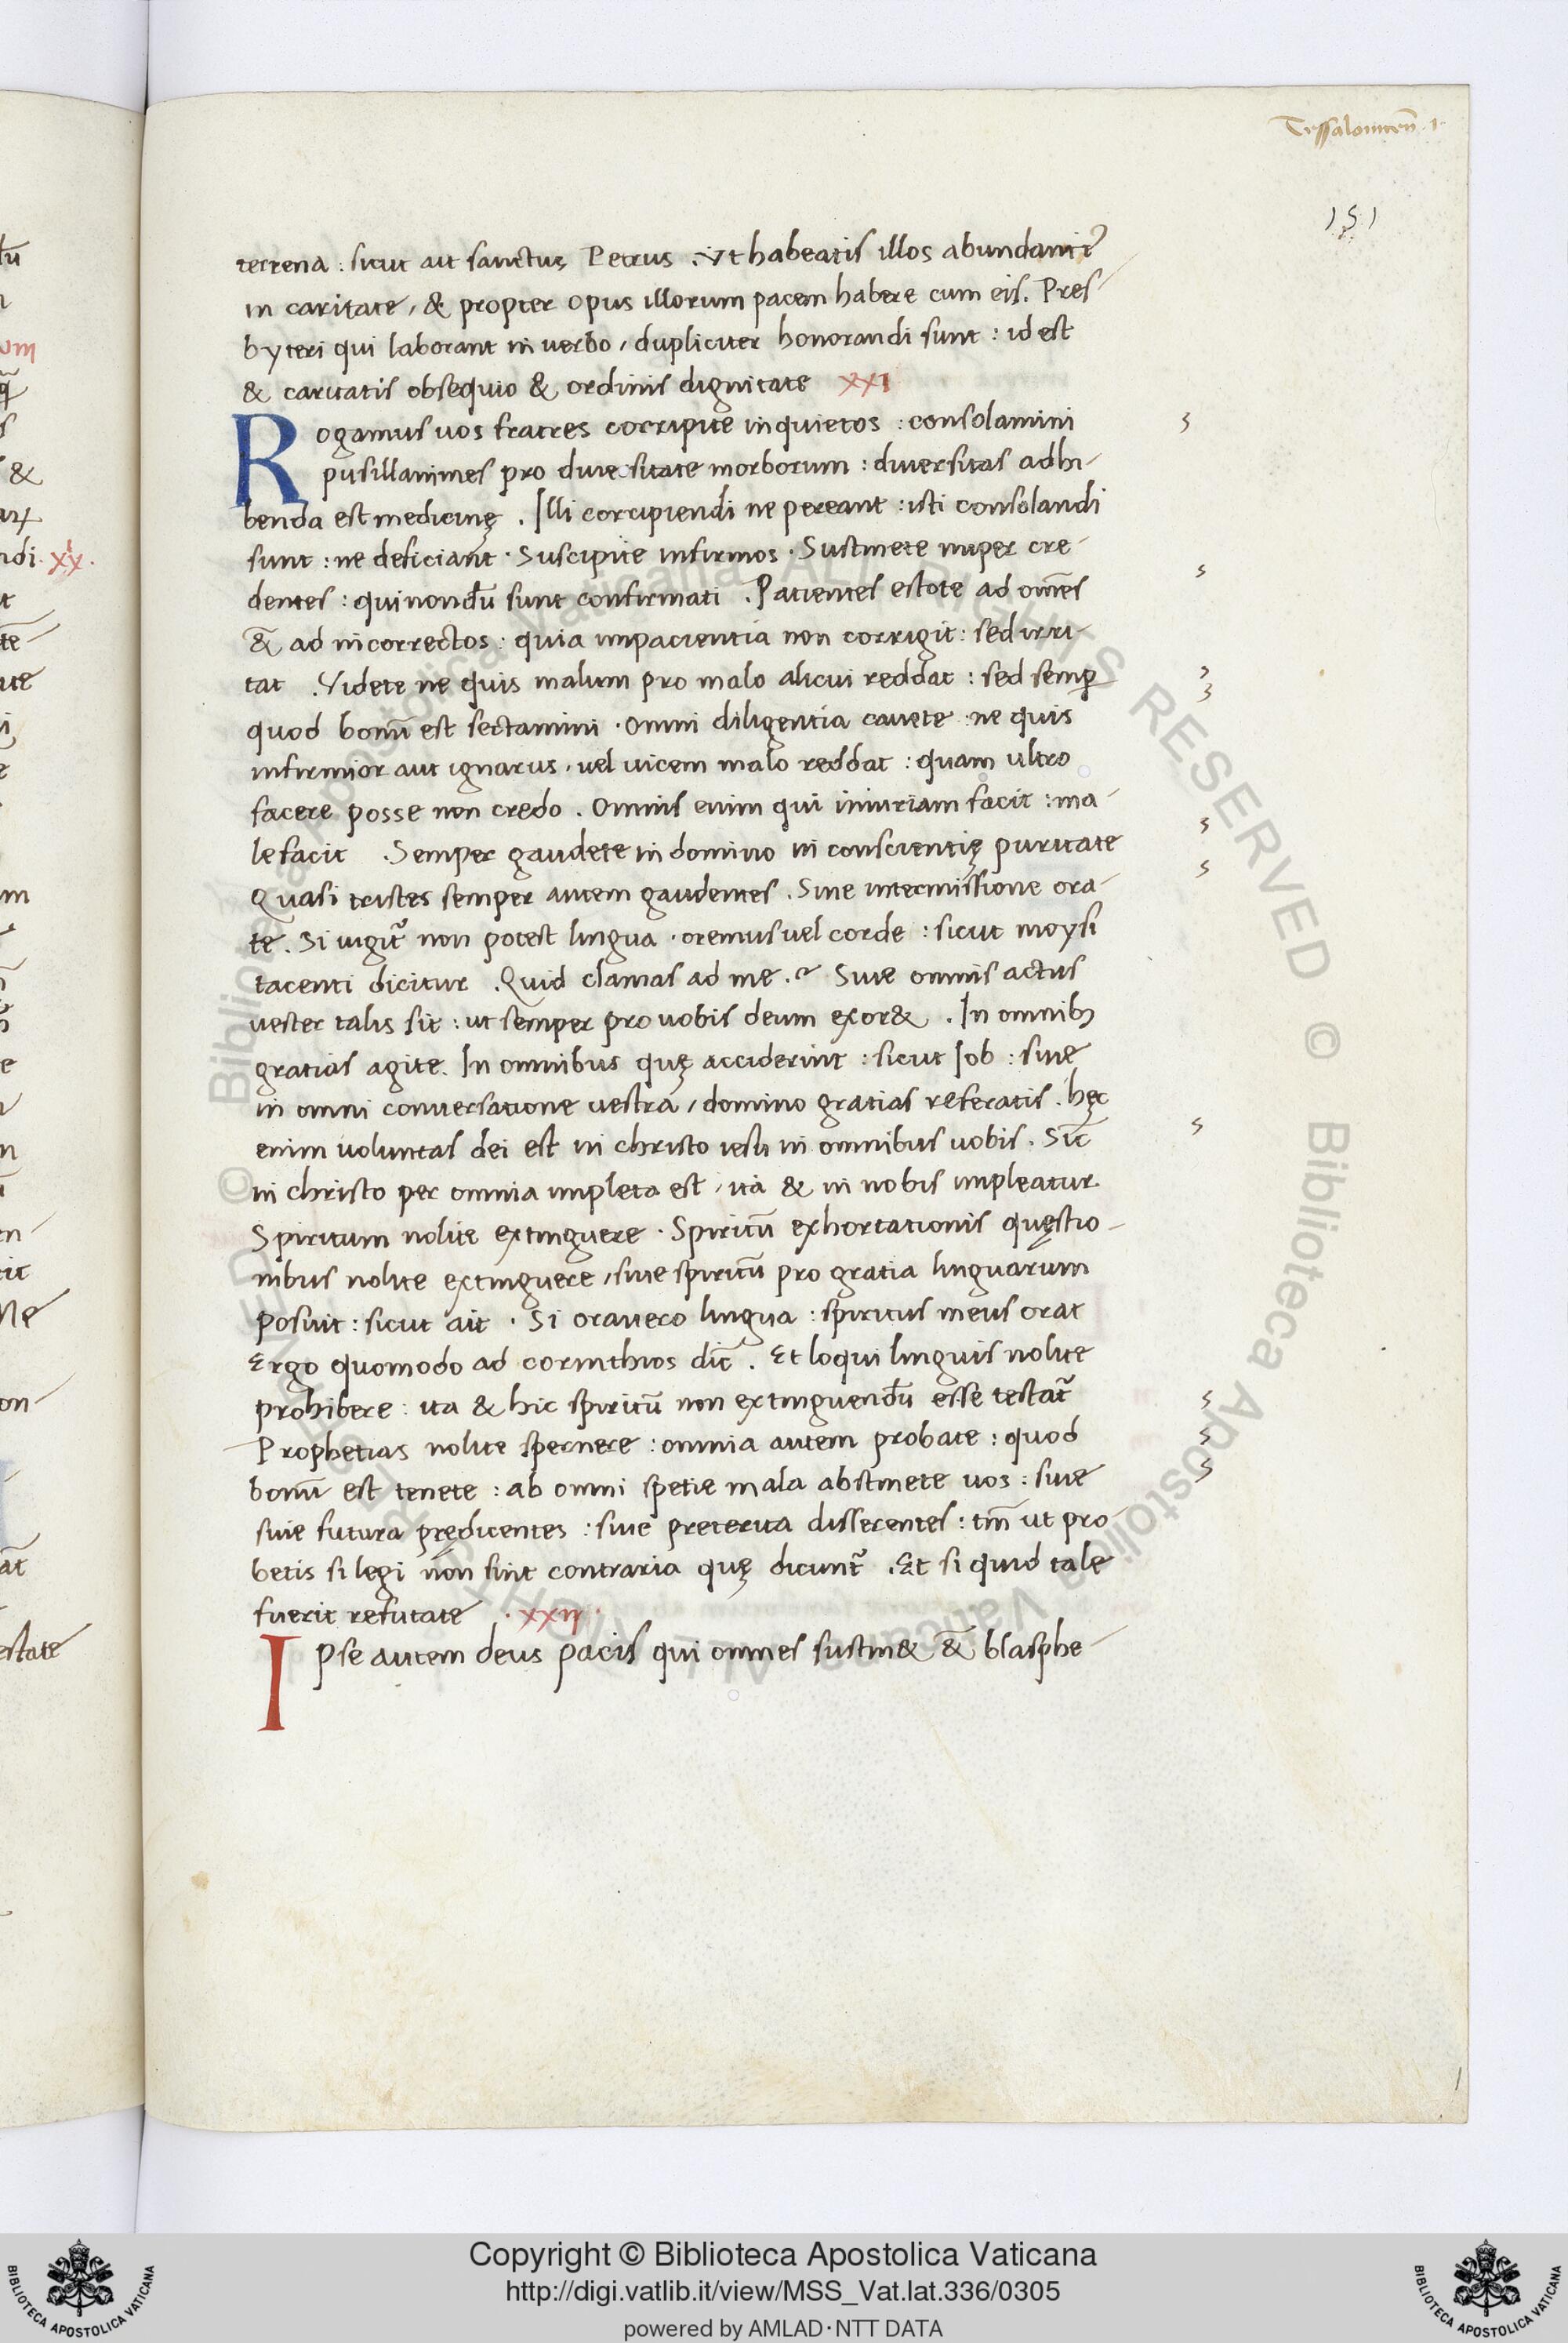 Tessalonicen̄ · 1·
151
terrena : sicut ait sanctus Petrus . Vt habeatis illos abundantiꝰ
in caritate , & propter opus illorum pacem habere cum eis. Pres-
byteri qui laborant in uerbo , dupliciter honorandi sunt : id est
& caritatis obsequio & ordinis dignitate XXI
Rogamus uos fratres corripite inquietos : consolamini
pusillanimes pro diue sitate morborum : diuersitas adhi-
benda est medicinę . Illi corripiendi ne pereant : isti consolandi
sunt : ne deficiant · Suscipite infirmos · Sustinete nuper cre-
dentes : qui nondū sunt confirmati . Patientes estote ad om̄es
& ad incorrectos : quia impacientia non corrigit : sed irri-
tat . Videte ne quis malum pro malo alicui reddat : sed semꝑ
quod bonū est sectamini · Omni diligentia cauete : ne quis
infirmior aut ignarus , uel uicem malo reddat : quam ultro
facere posse non credo . Omnis enim qui iniuriam facit : ma-
le facit . Semper gaudete in domino in conscientię puritate
Quasi tristes semper autem gaudentes . Sine intermissione ora-
te . Si iugit̄ non potest lingua · oremus uel corde : sicut moysi
tacenti dicitur . Quid clamas ad me .? Siue omnis actus
uester talis sit : ut semper pro uobis deum exor& . In omnibꝫ
gratias agite . In omnibus quę acciderint : sicut Job : siue
in omni conuersatione uestra , domino gratias referatis . hęc
enim uoluntas dei est in christo iesu in omnibus uobis . Sic̄
in christo per omnia impleta est , ita & in nobis impleatur
Spiritum nolite extinguere · Spiritū exhortationis quęstio-
nibus nolite extinguere , siue spiritū pro gratia linguarum
posuit : sicut ait · Si orauero lingua : spiritus meus orat
Ergo quomodo ad corinthios dic̄ . Et loqui linguis nolite
prohibere : ita & hic spiritū non extinguendū esse testat̄
Prophetias nolite spernere : omnia autem probate : quod
bonū est tenete : ab omni spetie mala abstinete uos : siue
siue futura prędicentes : siue preterita disserentes : tm̄ ut pro-
betis si legi non sint contraria quę dicunt̄ . Et si quid tale
fuerit refutate · XXII ·
Ipse autem deus pacis qui omnes sustin& & blasphe-
Copyright © Biblioteca Apostolica Vaticana
http://digi.vatlib.it/view/MSS_Vat.lat.336/0305
powered by AMLAD·NTT DATA